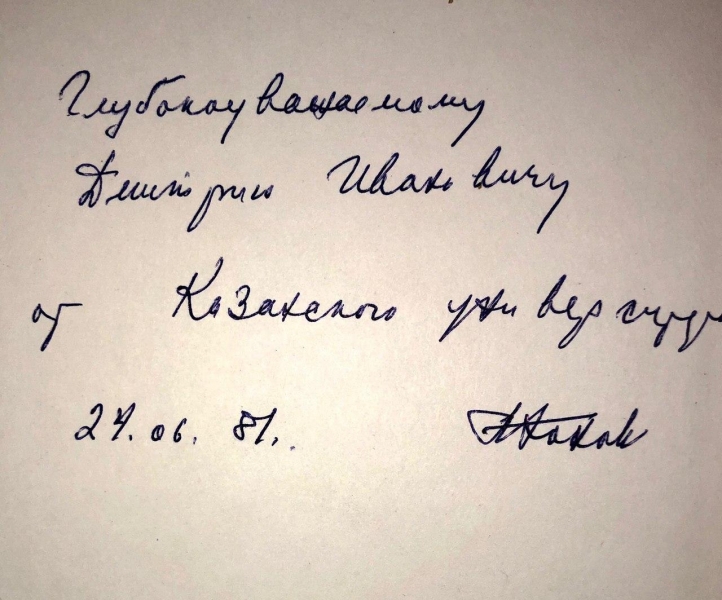 Глубокоуважаемому
Дмитрию Ивановичу
от Казанского университ
24.06.81.